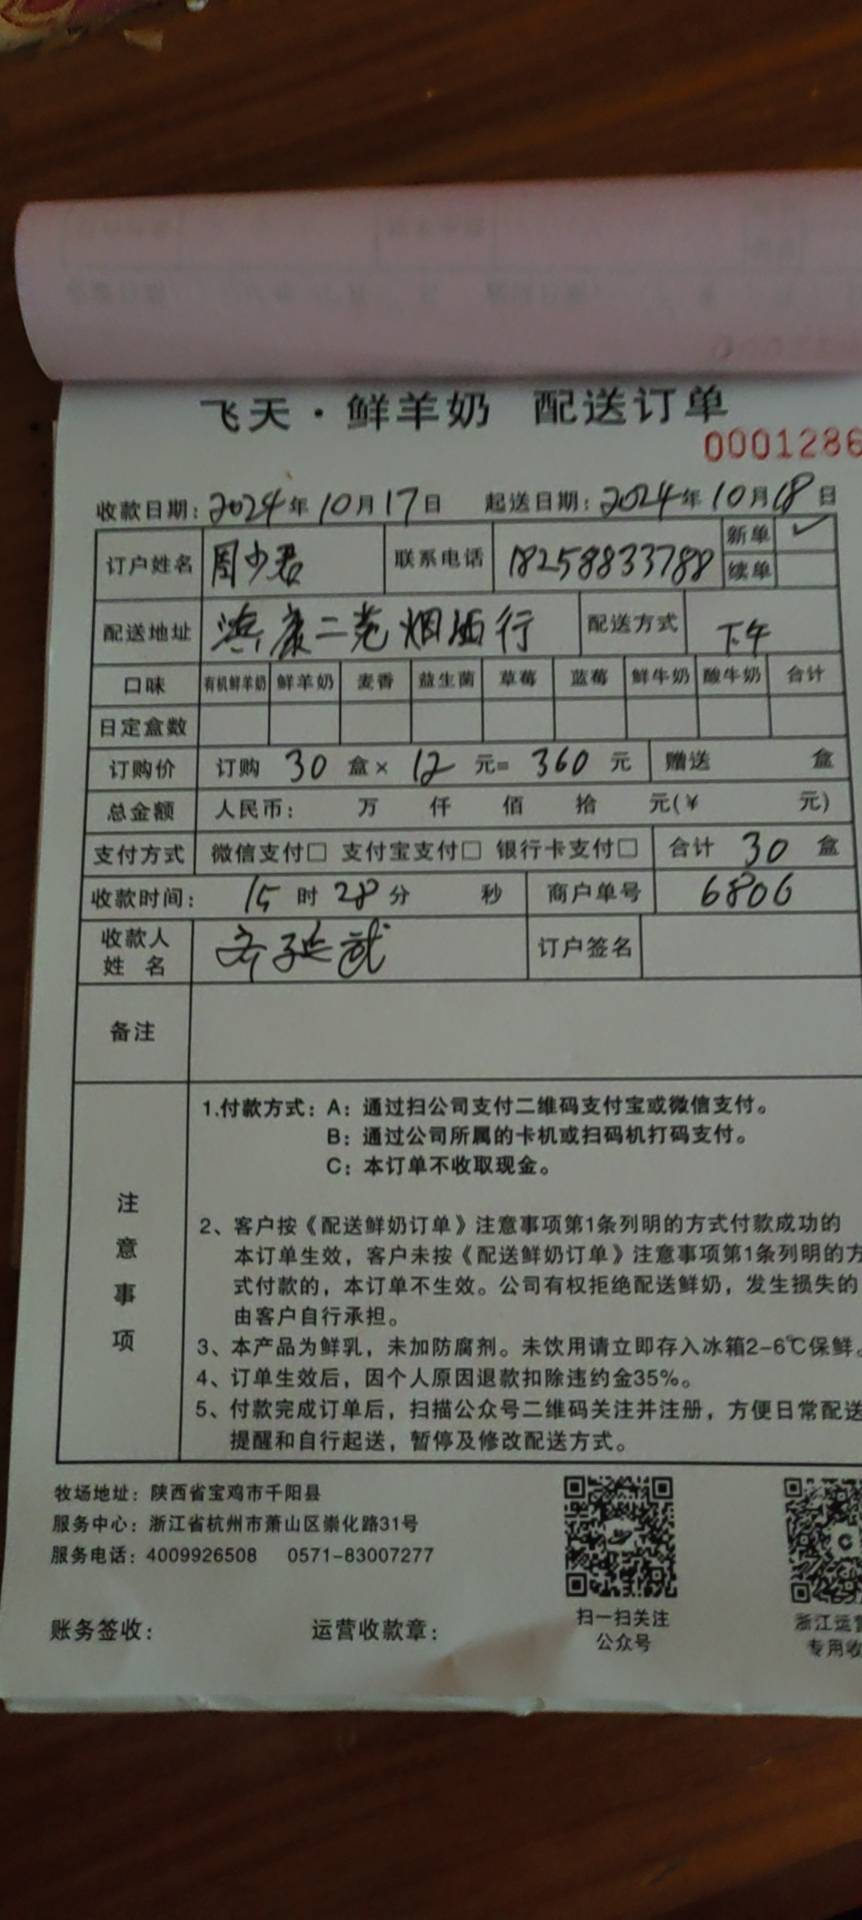 飞天·鲜羊奶 配送订单
0001286
收款日期: 2024年10月17日 起送日期: 2024年10月18日
订户姓名 周少君 联系电话 18258833788 新单 ✓
续单
配送地址 滨康二苑烟酒行 配送方式 下午
口味 有机鲜羊奶 鲜羊奶 麦香 益生菌 草莓 蓝莓 鲜牛奶 酸牛奶 合计
日定盒数
订购价 订购 30 盒× 12 元= 360 元 赠送 盒
总金额 人民币: 万 仟 佰 拾 元(¥ 元)
支付方式 微信支付□ 支付宝支付□ 银行卡支付□ 合计 30 盒
收款时间: 15时28分 秒 商户单号 6806
收款人
姓 名 延武 订户签名
备注
注意事项
1.付款方式: A: 通过扫公司支付二维码支付宝或微信支付。
B: 通过公司所属的卡机或扫码机打码支付。
C: 本订单不收取现金。
2、客户按《配送鲜奶订单》注意事项第1条列明的方式付款成功的
本订单生效，客户未按《配送鲜奶订单》注意事项第1条列明的方
式付款的，本订单不生效。公司有权拒绝配送鲜奶，发生损失的
由客户自行承担。
3、本产品为鲜乳，未加防腐剂。未饮用请立即存入冰箱2-6℃保鲜。
4、订单生效后，因个人原因退款扣除违约金35%。
5、付款完成订单后，扫描公众号二维码关注并注册，方便日常配送
提醒和自行起送，暂停及修改配送方式。
牧场地址: 陕西省宝鸡市千阳县
服务中心: 浙江省杭州市萧山区崇化路31号
服务电话: 4009926508 0571-83007277
扫一扫关注
公众号
浙江运营
专用收
账务签收: 运营收款章: